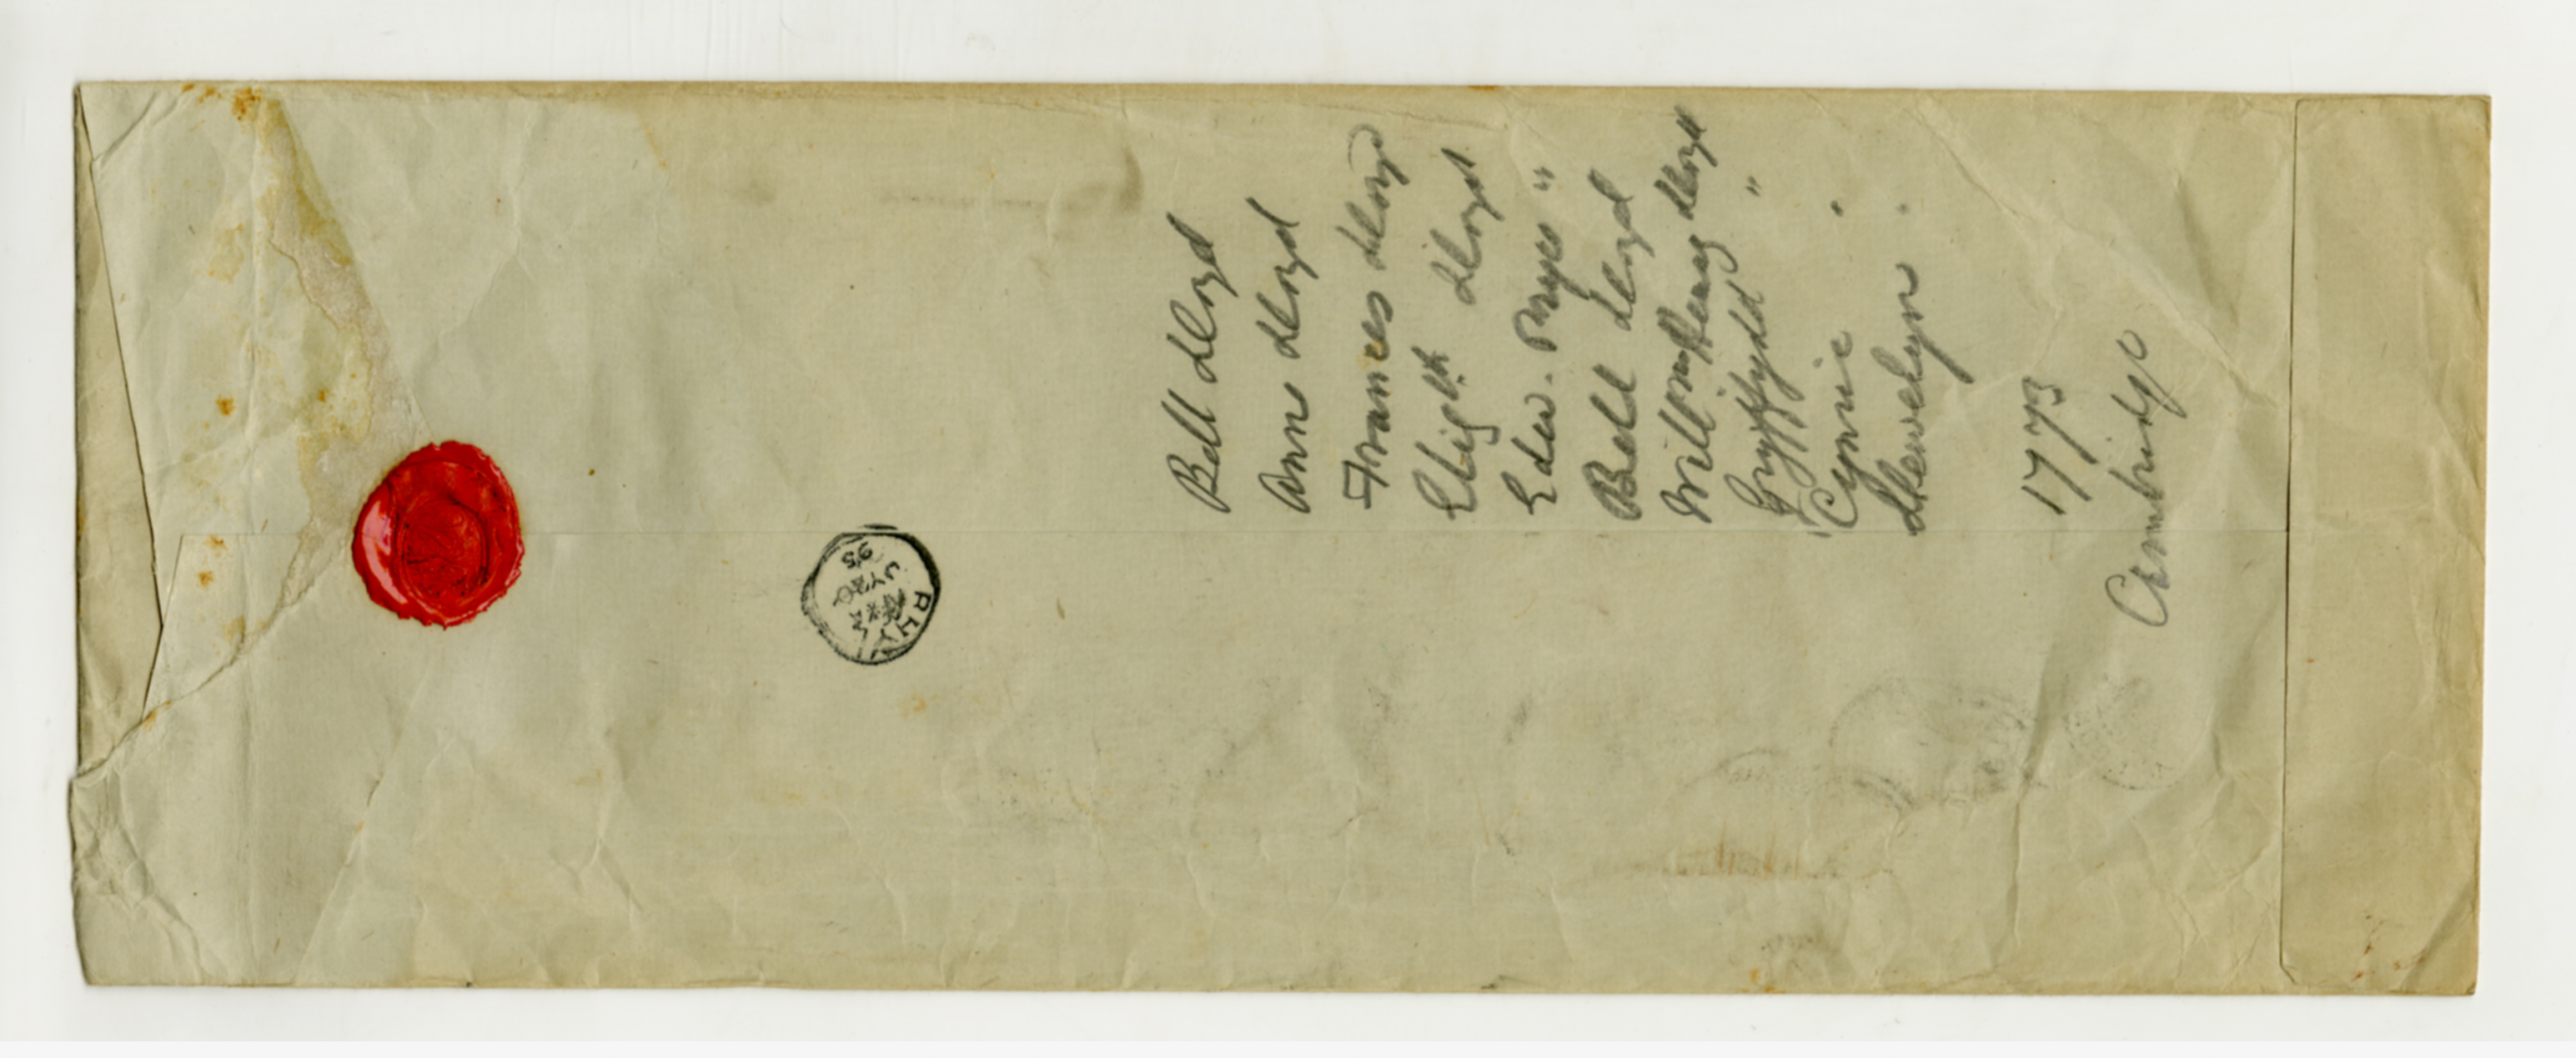 Bell Lloyd
Ann Lloyd
Frances Lloyd
Elizth Lloyd
Edw. Pryce "
Bell Lloyd
Willm Henry Lloyd
Gryffydd "
Cynric "
Llewelyn "
1773
Cambridge
RHYL
JY 20
95